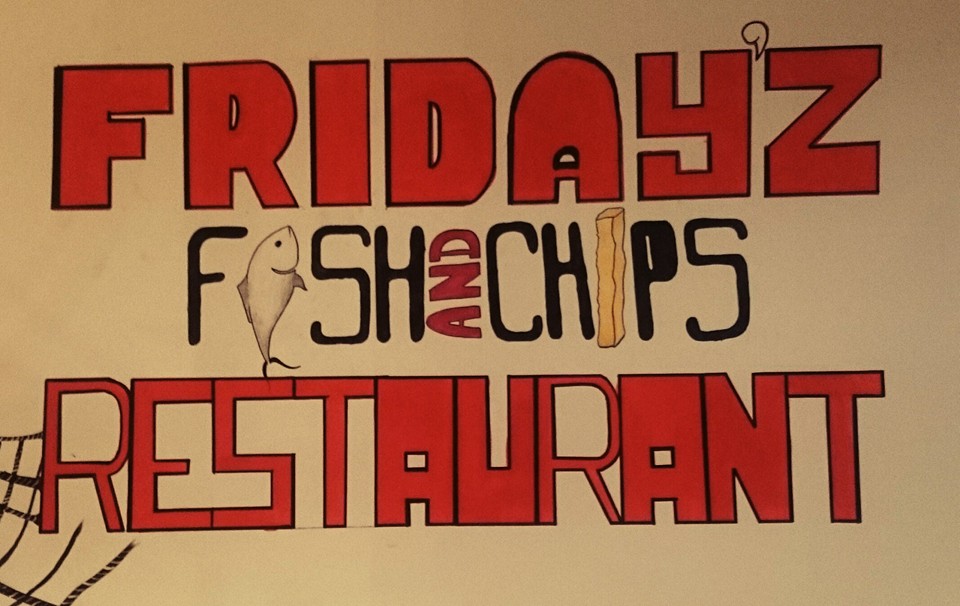 FRIDAY'Z
FISH AND CHIPS
RESTAURANT